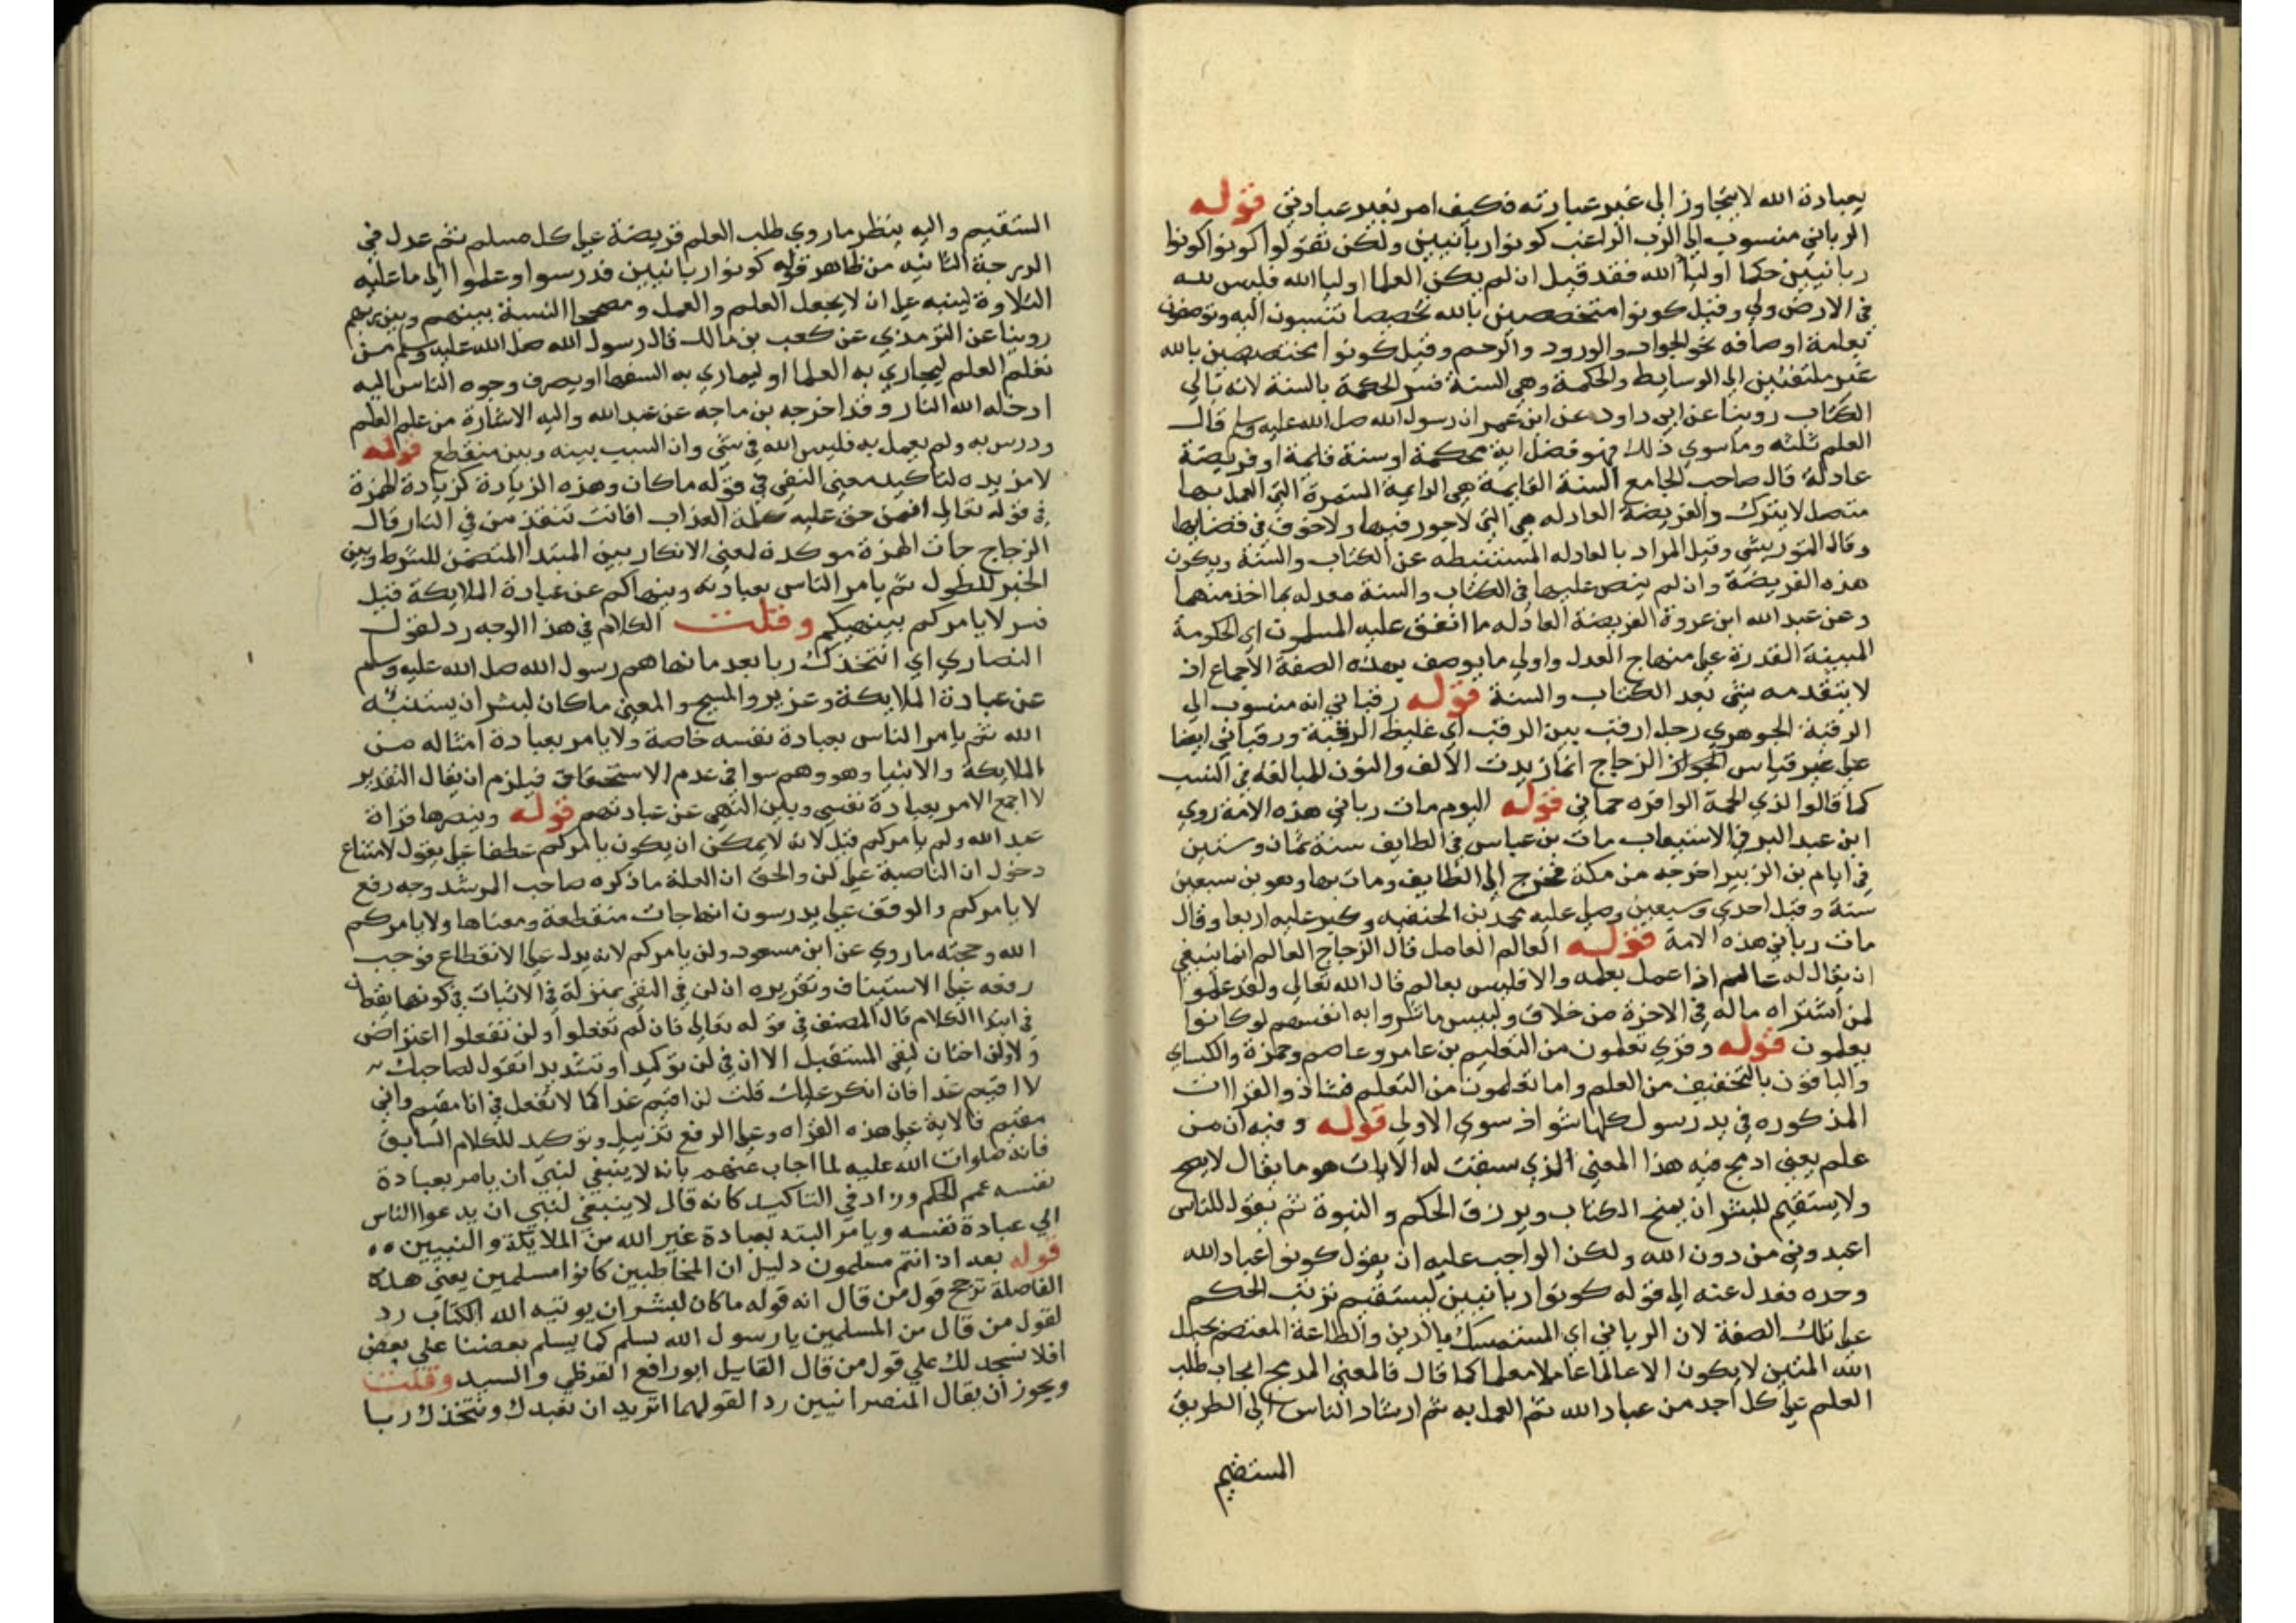 بعبادة الله لا يتجاوز الى غير عبادته فكيف امر بغير عبادتي قوله
الرباني منسوب الى الرب الراغب كونوا ربانيين ولكن تقولوا كونوا كونوا
ربانيين حكما اوليا الله فقد قيل ان لم يكن العلما اوليا الله فليس لله
في الارض ولي وقيل كونوا متخصصين بالله تخصصا تنسبون اليه وتوصفون
بعلمة اوصافه نحو الجواد والورود والرحم وقيل كونوا مختصصين بالله
غير ملتفتين الى الوسايط والحكمة وهي السنة فسر الحكمة بالسنة لانه تالي
الكتاب روينا عن ابي داود عن ابن عمر ان رسول الله صلى الله عليه وسلم قال
العلم ثلثه وما سوي ذلك فهو فضل اية محكمة او سنة قايمة او فريضة
عادلة قال صاحب الجامع السنة القايمة هي الدايمة المستمرة التي العمل بها
متصل لا يترك والفريضة العادله هي التي لا جور فيها ولا حوف في قضايها
وقال التوربشتي وقيل المراد بالعادله المستنبطه عن الكتاب والسنة ويكون
هذه الفريضة وان لم ينص عليها في الكتاب والسنة معدله بما اخذ منهما
وعن عبد الله ابن عروة الفريضة العادله ما اتفق عليه المسلمون اي الحكومة
المبينة القدرة على منهاج العدل واولي ما يوصف بهذه الصفة الاجماع اذ
لا يتقدمه شي بعد الكتاب والسنة قوله رقباني انه منسوب الى
الرقبة الجوهري رجل ارقب بين الرقب اي غليظ الرقبة ورقباني ايضا
على غير قياس الزجاج انما زيدت الالف والنون للمبالغة في النسب
كما قالوا لذي الجمة الوافره جماني قوله اليوم مات رباني هذه الامة روي
ابن عبد البر في الاستيعاب مات بن عباس في الطايف سنة ثمان وستين
في ايام بن الزبير اخرجه من مكة فخرج الى الطايف ومات بها وهو بن سبعين
سنة وقيل احدى وسبعين وصلى عليه محمد بن الحنفيه وكبر عليه اربعا وقال
مات رباني هذه الامة قوله العالم العامل قال الزجاج العالم انما ينبغي
ان يقال له عالم اذا عمل بعلمه والا فليس بعالم قال الله تعالى ولقد علموا
لمن اشتراه ماله في الاخرة من خلاق ولبيس ما شروا به انفسهم لو كانوا
يعلمون قوله وقري تعلمون من التعليم بن عامر وعاصم وحمزة والكساي
والباقون بالتخفيف من العلم واما تعلمون من التعلم فشاذ والقراات
المذكوره في يدرسول كلها شواذ سوى الاولى قوله وفيه ان من
علم يعني ادمج فيه هذا المعنى الذي سيقت له الايات هو ما يقال لا يصح
ولا يستقيم للبشر ان يمنح الكتاب ويرزق الحكم والنبوة ثم يقول للناس
اعبدوني من دون الله ولكن الواجب عليه ان يقول كونوا عباد الله
وحده فعدل عنه الى قوله كونوا ربانيين ليستقيم ترتب الحكم
على تلك الصفة لان الرباني اي المستمسك بالدين والطاعة المعتصم بحبل
الله المتين لا يكون الا عالما عاملا معلما كما قال فالمعني المدمج ايجاب طلب
العلم على كل احد من عباد الله ثم العمل به ثم ارشاد الناس الى الطريق
المستقيم
المستقيم واليه ينظر ما روي طلب العلم فريضة على كل مسلم ثم عدل في
الدرجة الثانيه من ظاهر قوله كونوا ربانيين فدرسوا وعلموا الى ما عليه
التلاوة لينبه على ان لا يجعل العلم والعمل النسبة بينهم وبين ربهم
روينا عن الترمذي عن كعب بن مالك قال رسول الله صلى الله عليه وسلم من
تعلم العلم ليجاري به العلما او ليماري به السفها او يصرف وجوه الناس اليه
ادخله الله النار وقد اخرجه بن ماجه عن عبد الله واليه الاشارة من علم العلم
ودرس به ولم يعمل به فليس الله في شي وان السبب بينه وبين منقطع قوله
لا مزيده لتاكيد معنى النفي في قوله ما كان وهذه الزيادة كزيادة الهمزة
في قوله تعالى افمن حق عليه كلمة العذاب افانت تنقذ من في النار قال
الزجاج جات الهمزة موكدة لمعنى الانكار بين المبتدا المتضمن للشرط وبين
الخبر للطول ثم يامر الناس بعبادته وينهاكم عن عبادة الملايكة قيل
فسر لا يامركم بينهيكم وقلت الكلام في هذا الوجه رد لقول
النصاري اي انتخذك ربا بعد ما نهاهم رسول الله صلى الله عليه وسلم
عن عبادة الملايكة وعزير والمسيح والمعنى ما كان لبشر ان يستنبه
الله ثم يامر الناس بعبادة نفسه خاصة ولا يامر بعبادة امثاله من
الملايكة والانبيا وهو وهم سوا في عدم الاستحقاق فيلزم ان يقال التقدير
لا اجمع الامر بعبادة نفسي وبين النهي عن عبادتهم قوله وينصرها قراة
عبد الله ولم يامركم قيل لانه لا يمكن ان يكون يامركم عطفا على يقول لامتناع
دخول ان الناصبة على لن والحق ان العلة ما ذكره صاحب المرشد وجه رفع
لا يامركم والوقف على يدرسون انها جات منقطعة ومعناها ولا يامركم
الله وحجته ما روي عن ابن مسعود ولن يامركم لانه يدل على الانقطاع فوجب
رفعه على الاستيناف وتقريره ان لن في النفي بمنزلة في الاثبات في كونهما يقعان
في ابتدا الكلام قال المصنف في قوله تعالى فان لم تفعلوا ولن تفعلوا اعتراض
ولا ولن اختان لنفي المستقبل الا ان في لن توكيدا وتشديدا تقول لصاحبك
لا اقيم غدا فان انكر عليك قلت لن اقيم غدا كما لا تفعل في انا مقيم واني
مقيم فالاية على هذه القراه وعلى الرفع تذييل وتوكيد للكلام السابق
فانه صلوات الله عليه لما اجاب عنهم بانه لا ينبغي لنبي ان يامر بعبادة
نفسه عمم الحكم وزاد في التاكيد كانه قال لا ينبغي لنبي ان يدعوا الناس
الي عبادة نفسه ويامر البته بعبادة غير الله من الملايكة والنبيين
قوله بعد اذ انتم مسلمون دليل ان المخاطبين كانوا مسلمين يعني هذه
الفاصلة ترجح قول من قال انه قوله ما كان لبشر ان يوتيه الله الكتاب رد
لقول من قال من المسلمين يا رسول الله نسلم كما يسلم بعضنا على بعض
افلا نسجد لك علي قول من قال القايل ابو رافع القرظي والسيد وقلت
ويجوز ان يقال المنصرانيين ردا لقولهما اتريد ان نعبدك ونتخذك ربا